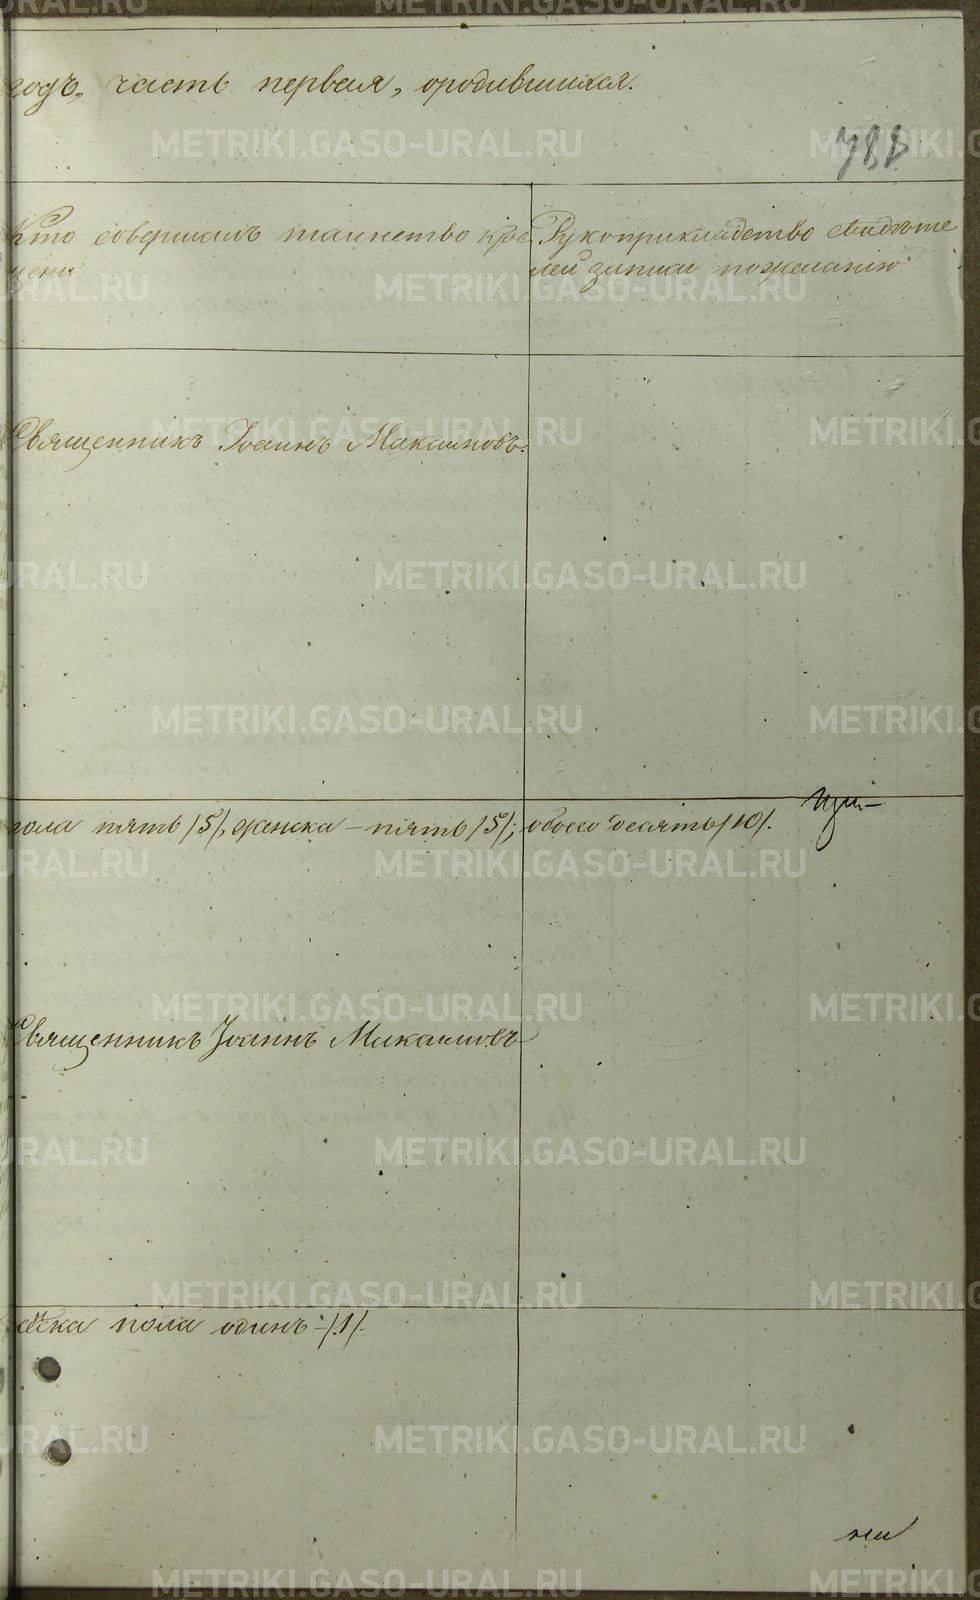 годъ, часть первая, ородившихся.
Кто совершалъ таинство кре
щенія
Рукоприкладство свидѣте
лей записи пожеланію
Священникъ Іоаннъ Макаимовъ.
пола пять /5/, женска – пять /5/; обоего десять /10/.
Священникъ Іоаннъ Макаимовъ
пола одинъ – /1/.
METRIKI.GASO-URAL.RU